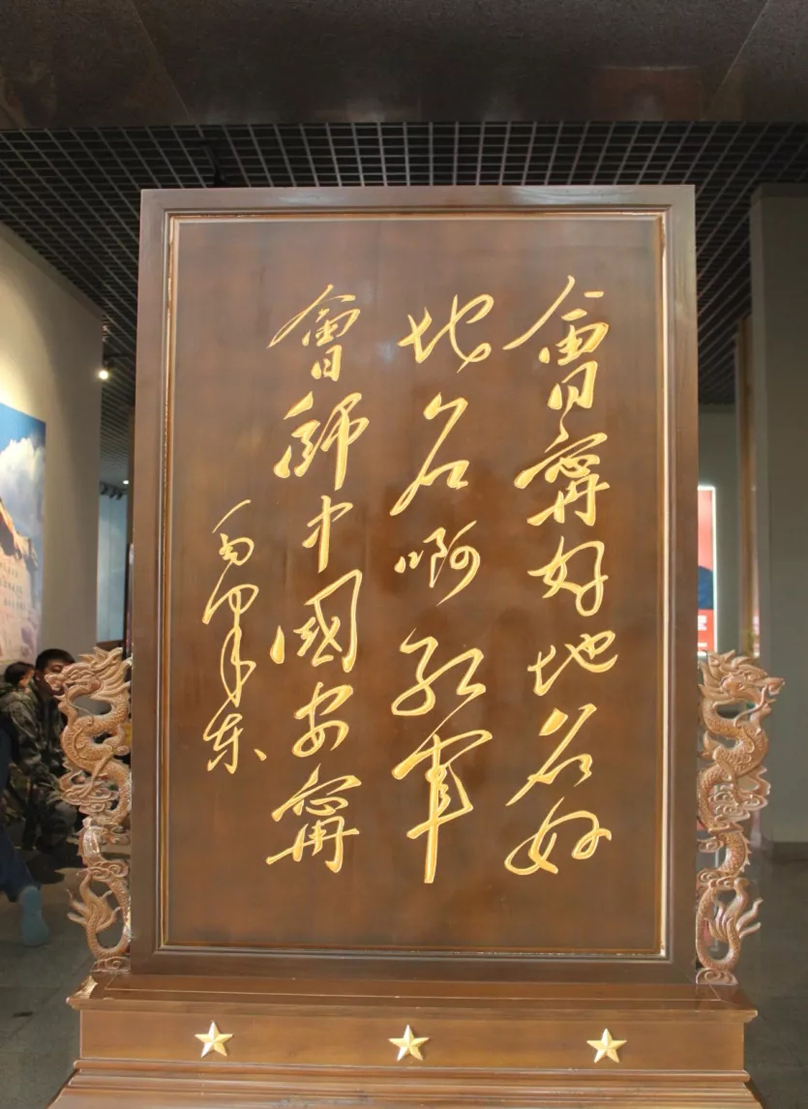 會寧好地名好
地名啊紅軍
會師中國安寧
毛澤东